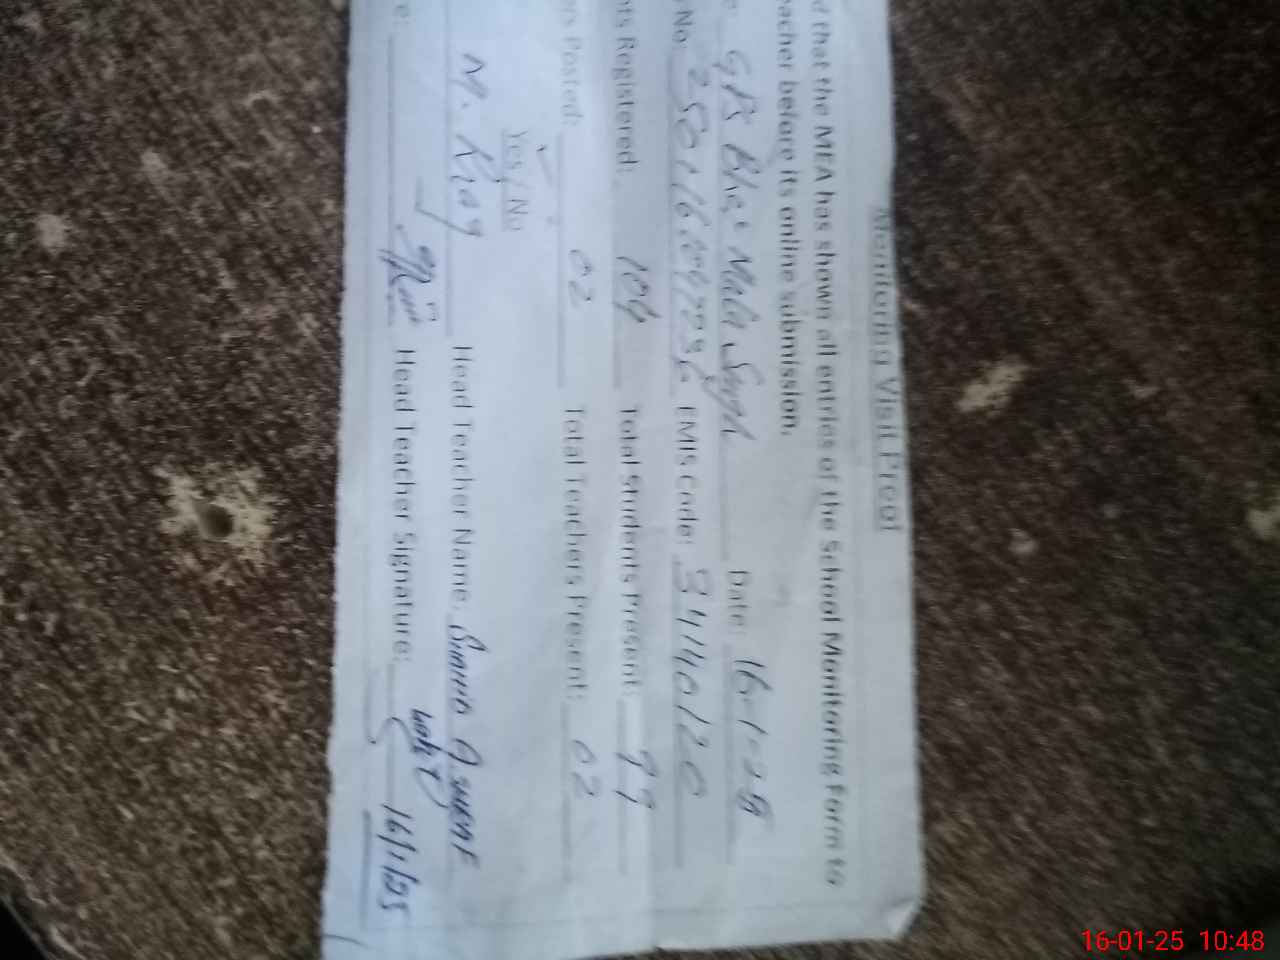 Monitoring Visit Proof
d that the MEA has shown all entries of the School Monitoring Form to
eacher before its online submission.
e: GPS Bhai Mala Singh Date: 16-1-25
No. EMIS Code: 34140120
ts Registered: 104 Total Students Present: 99
rs Posted: 02 Total Teachers Present: 02
Yes / No
M. Riaz Head Teacher Name: Ashraf
e: Head Teacher Signature: 16/1/25
16-01-25 10:48